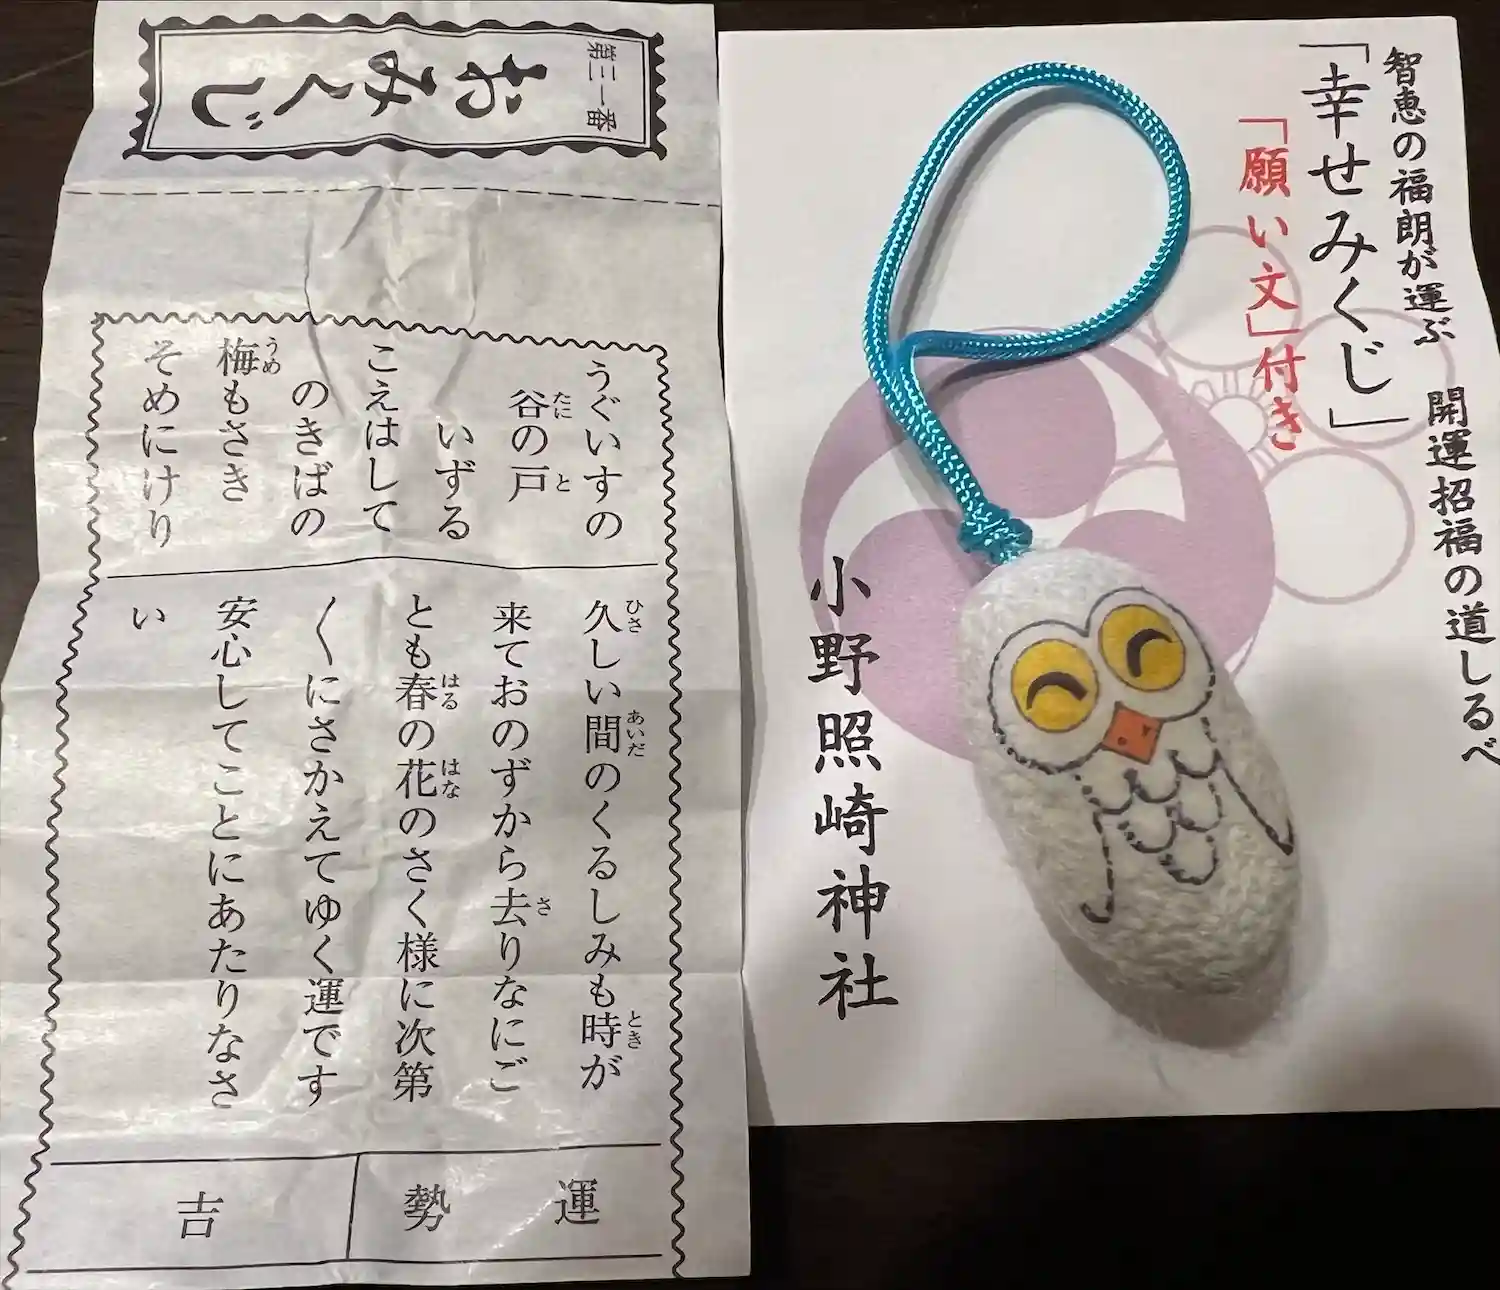 智恵の福朗が運ぶ 開運招福の道しるべ
「幸せみくじ」
「願い文」付き
小野照崎神社
第三一番
おみくじ
うぐいすの
谷の戸
たに
と
いずる
こえはして
のきばの
梅もさき
うめ
そめにけり
久しい間のくるしみも時が
ひさ
あいだ
とき
来ておのずから去りなにご
さ
とも春の花のさく様に次第
はる
はな
〱にさかえてゆく運です
安心してことにあたりなさ
い
運勢
吉